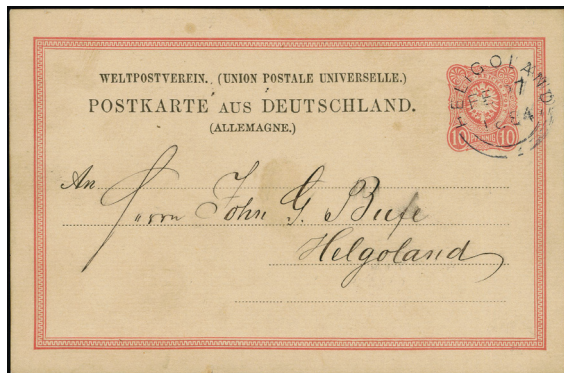 WELTPOSTVEREIN. (UNION POSTALE UNIVERSELLE.)
POSTKARTE AUS DEUTSCHLAND.
(ALLEMAGNE.)
HELIGOLAND
FE 27
1884
10 PFENNIG 10
An
Herrn John G.
Helgoland